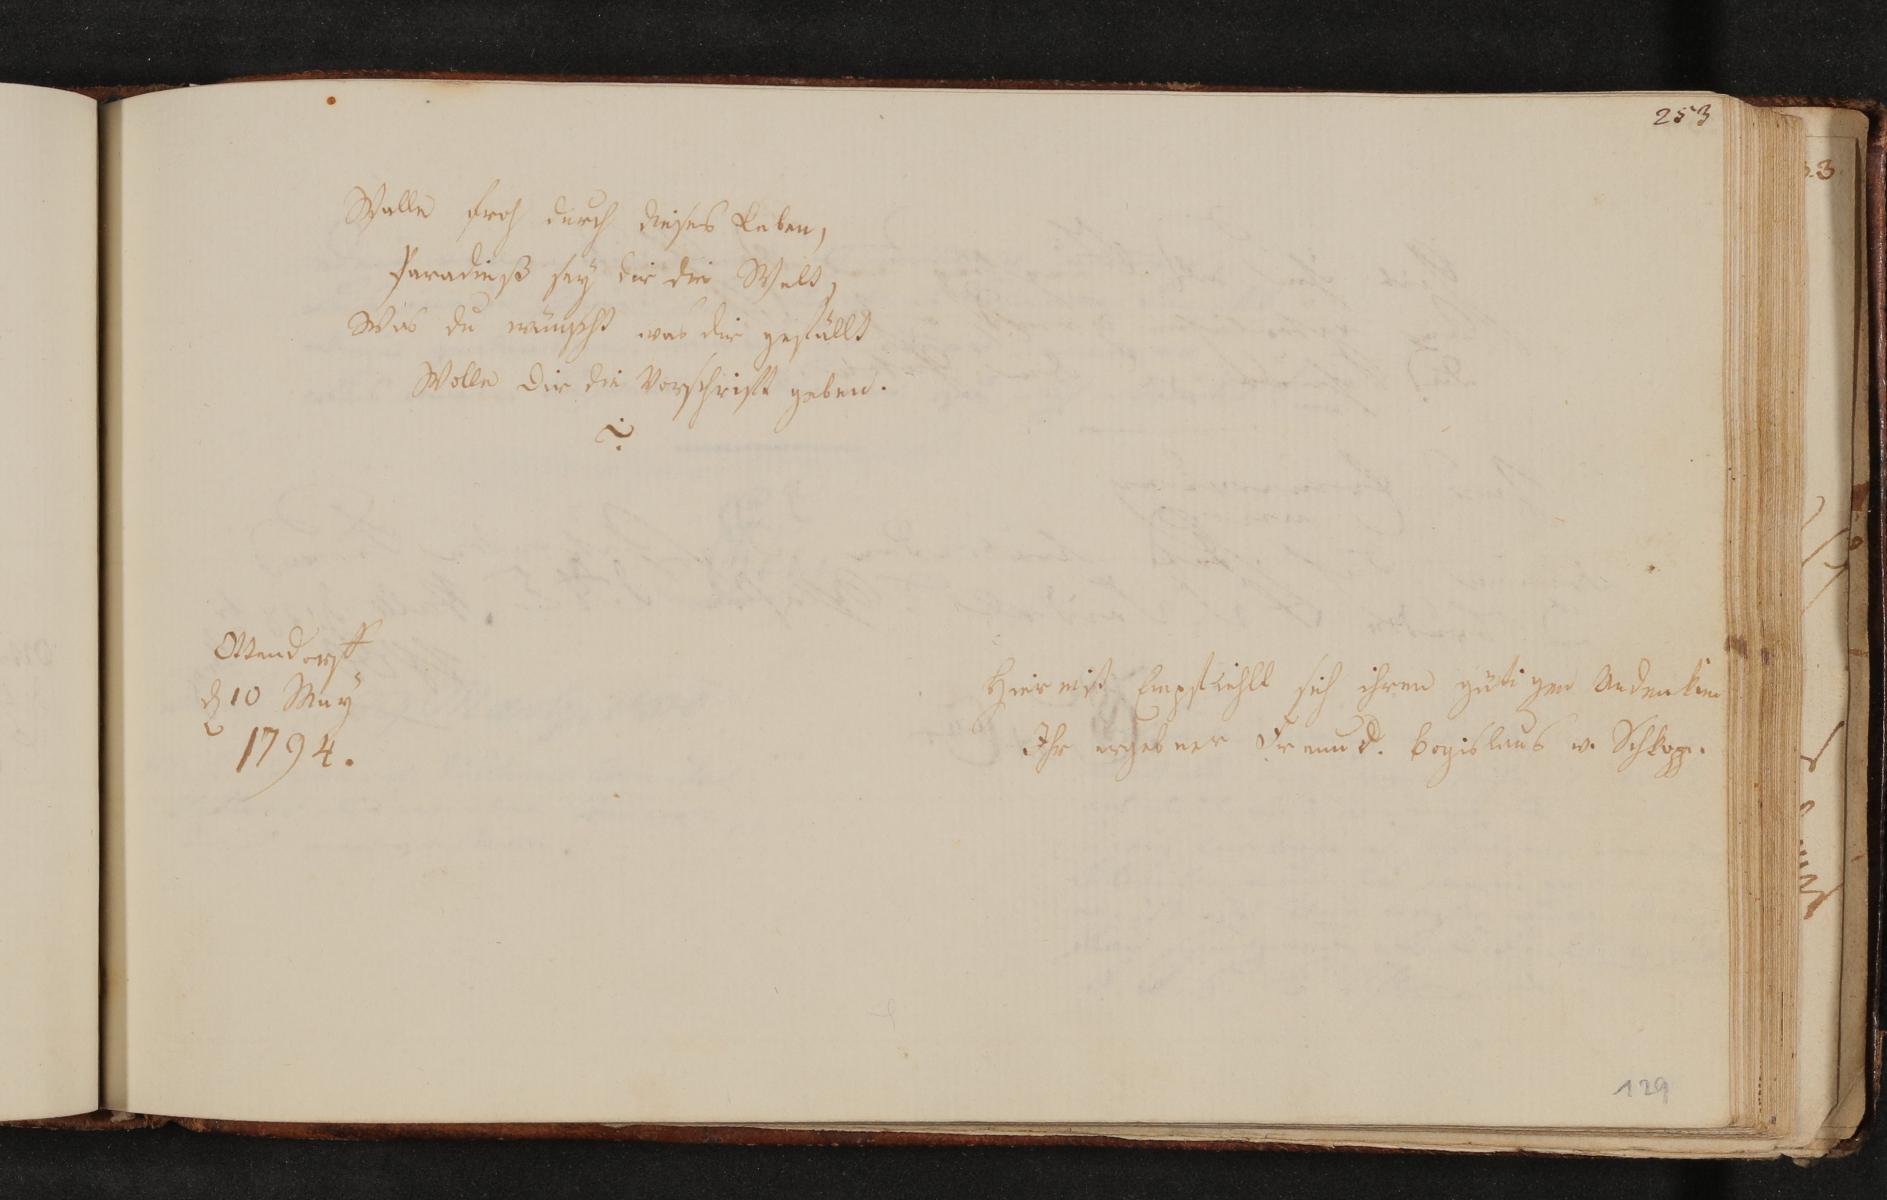 253
Walle froh durch dieses Leben,
Paradieß sey dir die Welt,
Was du wünscht was dir gefällt
Wolle Dir die Vorschrift geben.
Ottendorff
d 10 May
1794.
Hiermit Empfiehlt sich ihren gütigen Andenken
Ihr ergebner Freund. Bogislaus v. Schkopp.
129